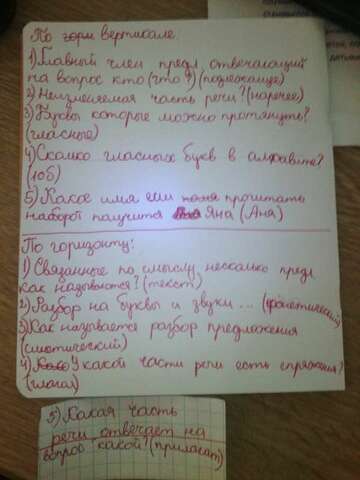 По гори вертикале.
1)Главный член предл. отвечающий
на вопрос кто(что?)(подлежащие)
2)Неизменяемая часть речи?(наречее)
3)Буквы которые можно протянуть?
(гласные)
4)Сколко гласных букв в алфавите?
(10б)
5)Какое имя если прочитать
наборот палучится Яна (Аня)
По горизонту:
1)Связанные по смыслу несколько предл
как называются?(текст)
2)Разбор на буквы и звуки...(фонетический)
3)Как называется разбор предложения
(синтакический)
4)У какой части речи есть спряжения?
(глагол)
5)Какая часть
речи отвечает на
вопрос какой?(прилагат)